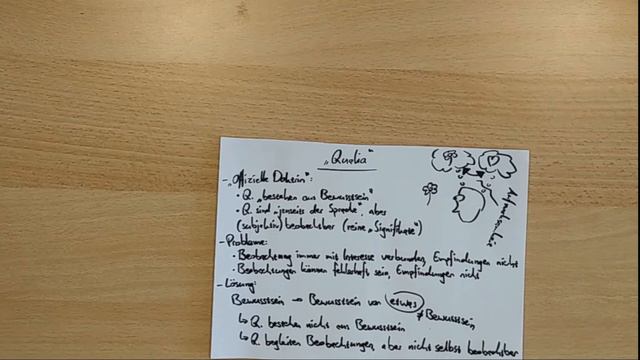 „Qualia“
- „Offizielle Doktrin“:
• Q. „bestehen aus Bewusstsein“
• Q. sind „jenseits der Sprache“, aber
(subjektiv) beobachtbar (reine „Signifikate“)
- Probleme:
• Beobachtung immer mit Interesse verbunden, Empfindungen nicht
• Beobachtungen können fehlerhaft sein, Empfindungen nicht
- Lösung:
Bewusstsein → Bewusstsein von etwas
≠ Bewusstsein
↳ Q. bestehen nicht aus Bewusstsein
↳ Q. begleiten Beobachtungen, aber nicht selbst beobachtbar